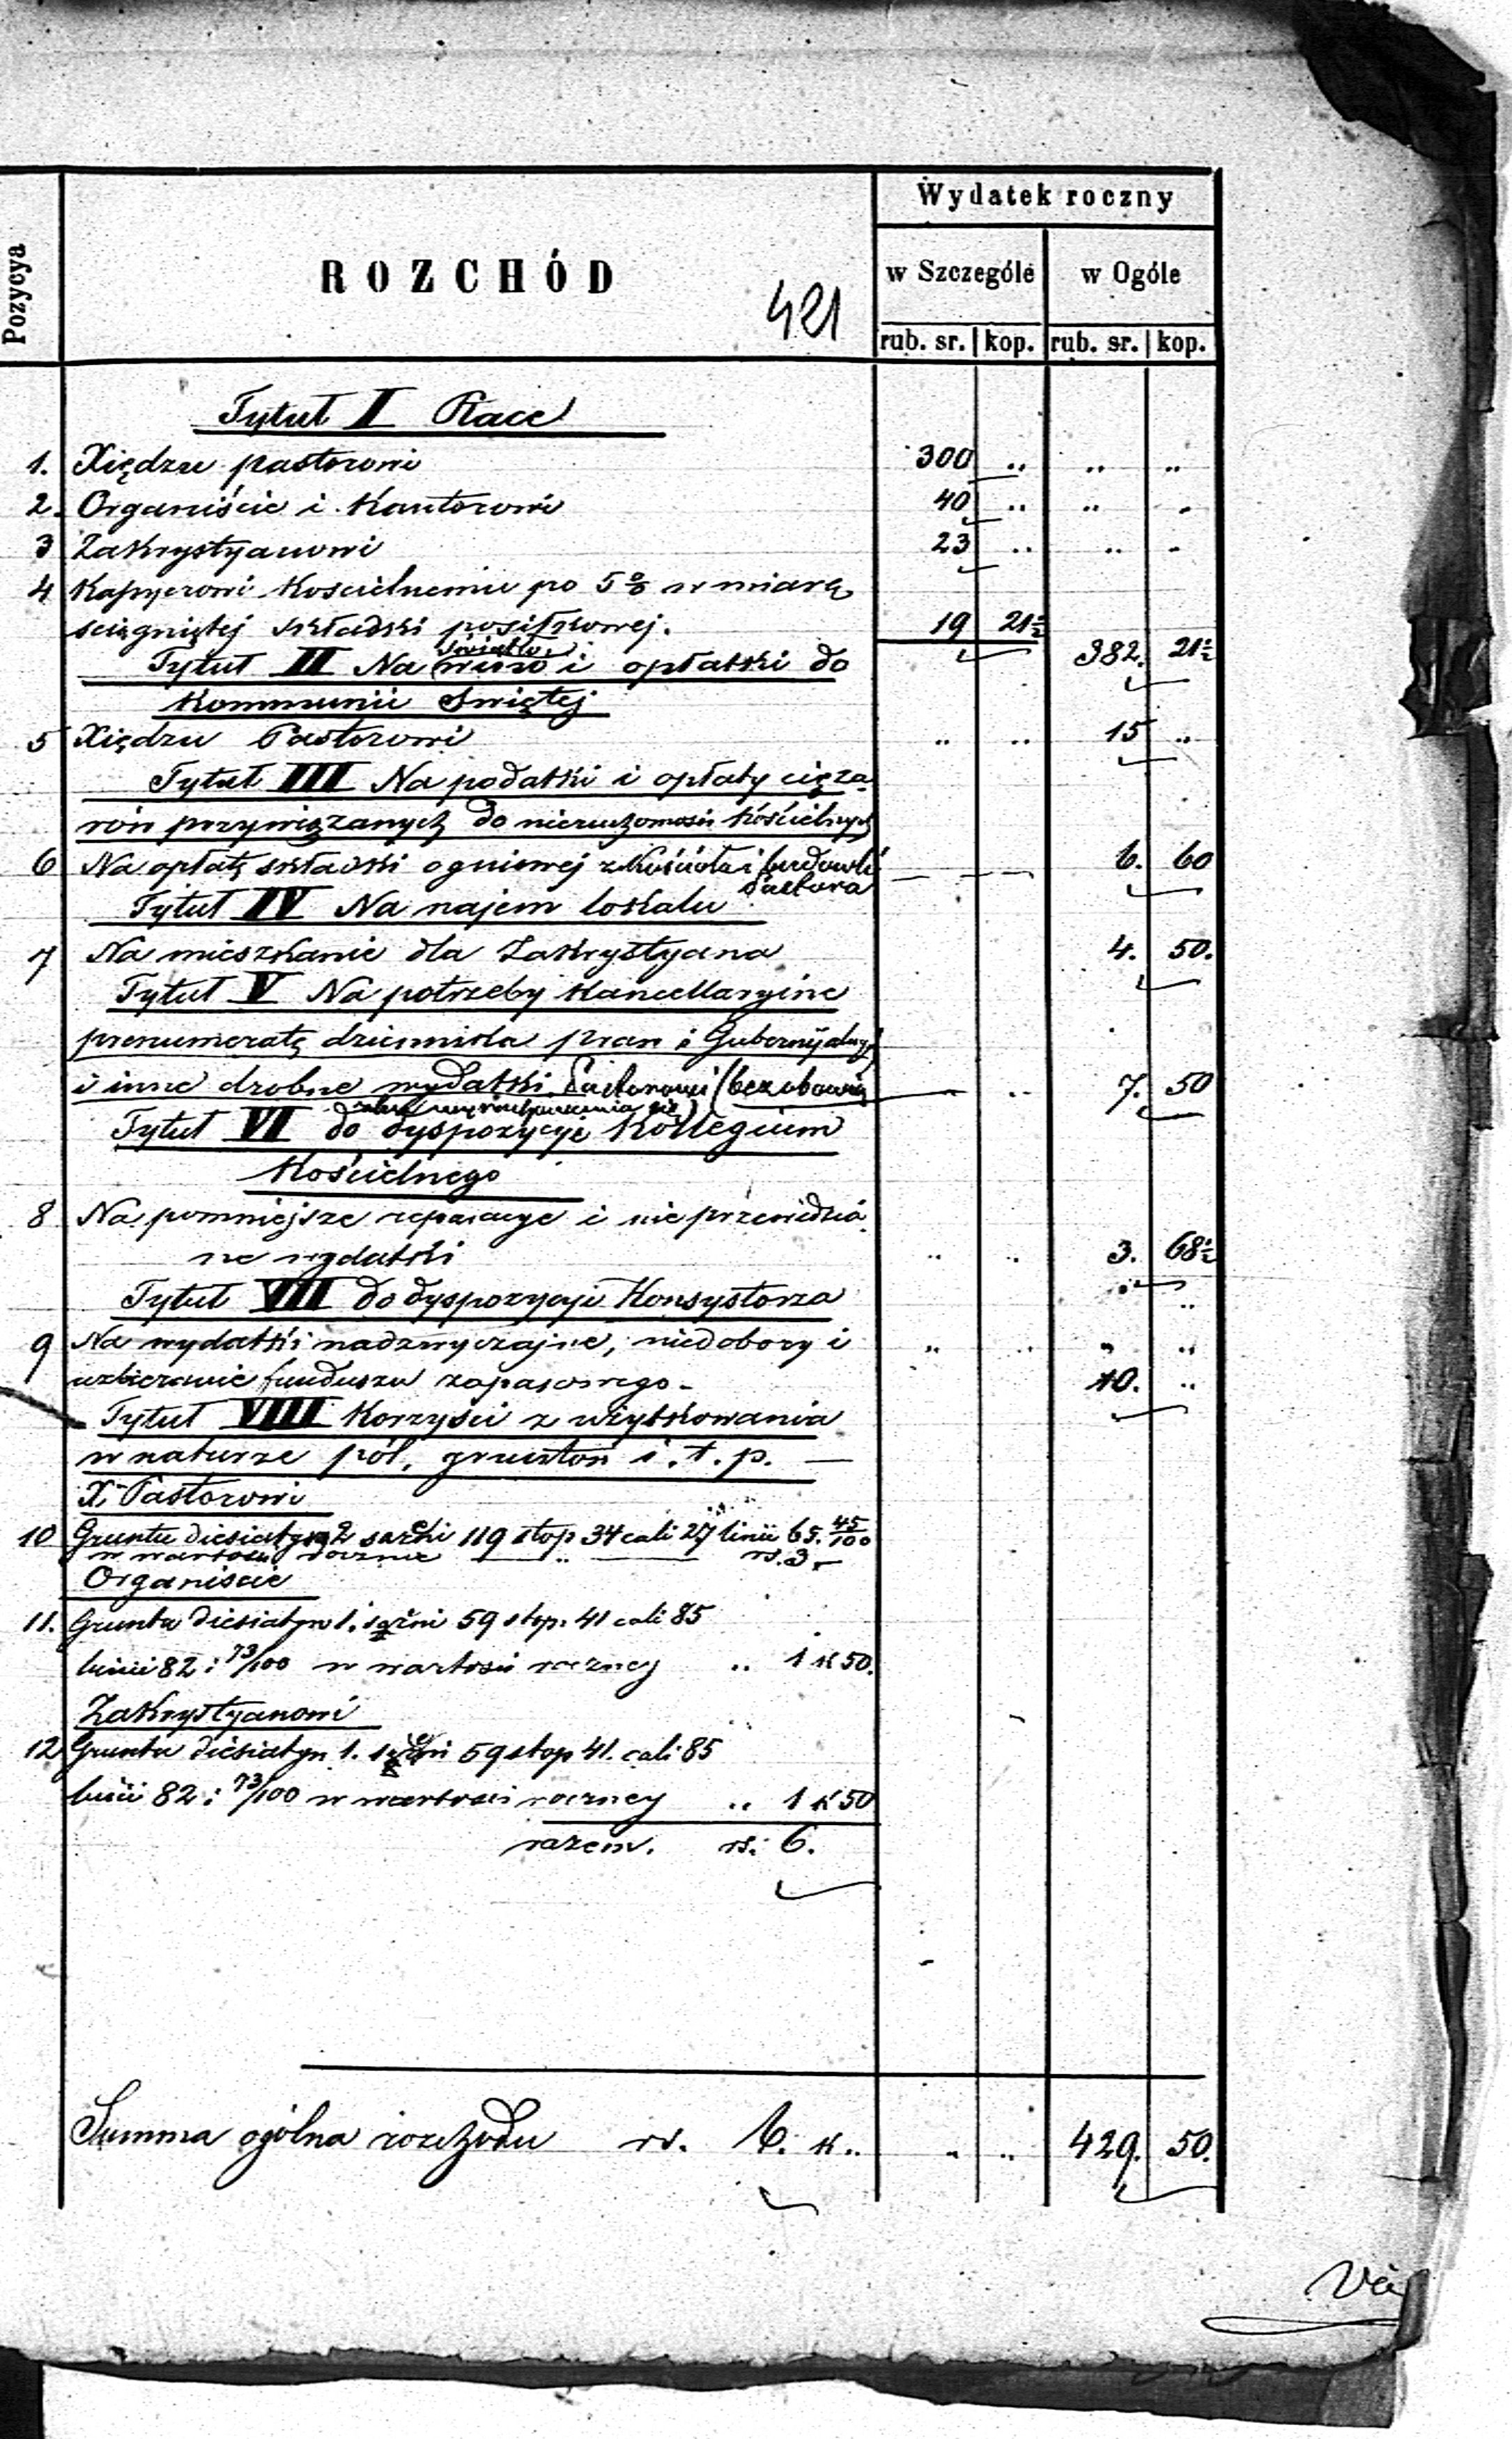 Wydatek roczny
Pozycya
ROZCHÓD
w Szczególe w Ogóle
421
rub. sr. kop. rub. sr. kop.
Tytuł I Płace
1. Xiędzu pastorowi 300 .. .. ..
2. Organiście i Kantorowi 40 .. .. .
3 Zakrystyanowi 23 .. .. .
4 Kassyerowi Kościelnemu po 5% w miarę
ściągniętej składki posiłkowej. 19 21½
światło
Tytuł II Na wino i opłatki do 382. 21½
Kommunii Świętej
5 Xiędzu Pastorowi .. .. 15 ..
Tytuł III Na podatki i opłaty cięża
rów przywiązanych do nieruchomości Kościelnych
6 Na opłatę składki ogniowej z Kościoła i budowli 6. 60
Pastora
Tytuł IV Na najem lokalu
7 Na mieszkanie dla Zakrystyana 4. 50.
Tytuł V Na potrzeby Kancellaryine
prenumeratę dziennika praw i Gubernijalnego
i inne drobne wydatki Pastorowi (bez obowią .. 7. 50
zku wyrachowania się)
Tytuł VI do dyspozycyi Kollegium
Kościelnego
8 Na pomniejsze reparacye i nie przewidzia
ne wydatki .. .. 3. 68½
Tytuł VII do dyspozycyi Konsystorza ..
9 Na wydatki nadzwyczajne, niedobory i .. .. .. ..
uzbieranie funduszu zapasowego - 10. ..
Tytuł VIII Korzyści z użytkowania
w naturze pól, gruntów i. t. p. —
X. Pastorowi
10 Gruntu diesiatyn 2 sażni 119 stop 34 cali 27 linii 65. 45/100
w wartości rocznie — .. — rs. 3 -
Organiście
11. Gruntu diesiatyn 1. sażni 59 stop. 41 cali 85
linii 82 i 73/100 w wartości roczney .. 1 k 50.
Zakrystyanowi
12 Gruntu diesiatyn 1. sażni 59 stop 41. cali 85
linii 82 i 73/100 w wartości roczney .. 1 k 50
razem. rs. 6.
Summa ogólna rozchodu rs. 6. k.. .. .. 429. 50.